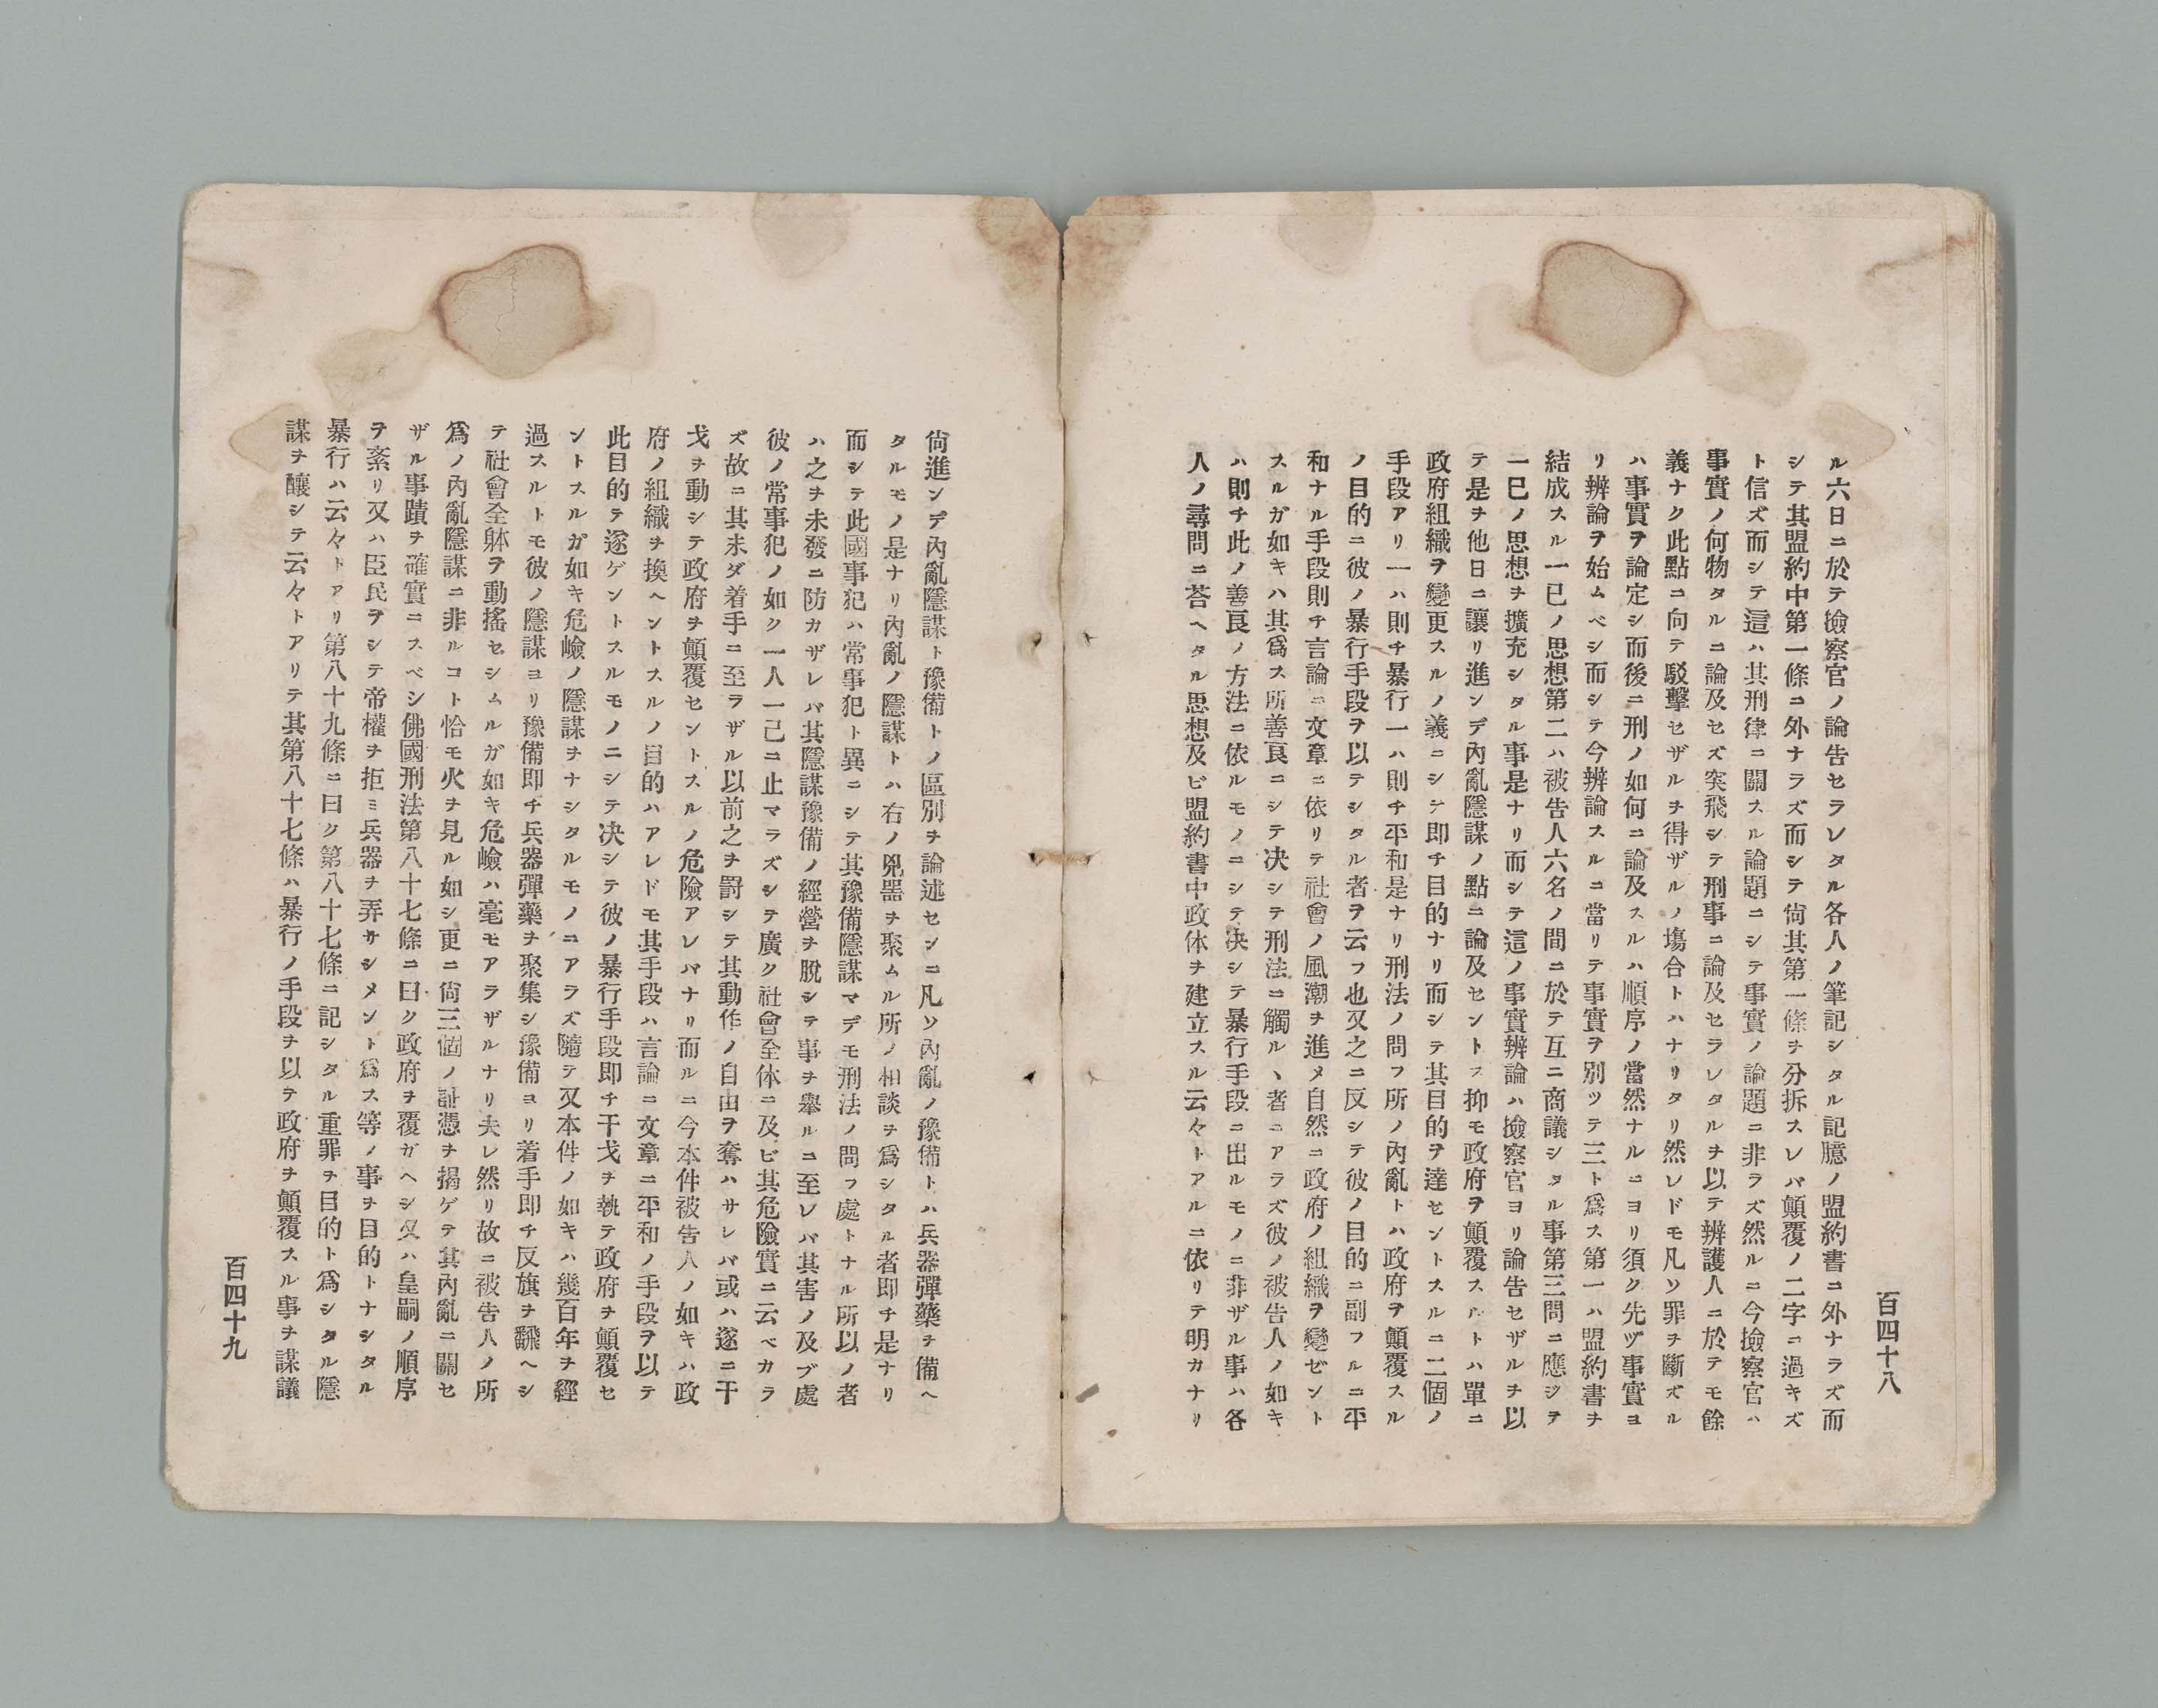 百四十八
ル六日ニ於テ撿察官ノ論告セラレタル各人ノ筆記シタル記臆ノ盟約書ニ外ナラズ而
シテ其盟約中第一條ニ外ナラズ而シテ尙其第一條ヲ分拆スレバ顚覆ノ二字ニ過キズ
ト信ズ而シテ這ハ其刑律ニ關スル論題ニシテ事實ノ論題ニ非ラズ然ルニ今撿察官ハ
事實ノ何物タルニ論及セズ突飛シテ刑事ニ論及セラレタルヲ以テ辨護人ニ於テモ餘
義ナク此點ニ向テ駁擊セザルヲ得ザルノ塲合トハナリタリ然レドモ凡ソ罪ヲ斷ズル
ハ事實ヲ論定シ而後ニ刑ノ如何ニ論及スルハ順序ノ當然ナルニヨリ須ク先ヅ事實ヨ
リ辨論ヲ始ムベシ而シテ今辨論スルニ當リテ事實ヲ別ツテ三ト爲ス第一ハ盟約書ヲ
結成スル一已ノ思想第二ハ被告人六名ノ間ニ於テ互ニ商議シタル事第三問ニ應ジテ
一巳ノ思想ヲ擴充シタル事是ナリ而シテ這ノ事實辨論ハ撿察官ヨリ論告セザルヲ以
テ是ヲ他日ニ讓リ進ンデ內亂隱謀ノ點ニ論及セントス抑モ政府ヲ顚覆スルトハ單ニ
政府組織ヲ變更スルノ義ニシテ即チ目的ナリ而シテ其目的ヲ達セントスルニ二個ノ
手段アリ一ハ則チ暴行一ハ則チ平和是ナリ刑法ノ問フ所ノ內亂トハ政府ヲ顚覆スル
ノ目的ニ彼ノ暴行手段ヲ以テシタル者ヲ云フ也又之ニ反シテ彼ノ目的ニ副フルニ平
和ナル手段則チ言論ニ文章ニ依リテ社會ノ風潮ヲ進メ自然ニ政府ノ組織ヲ變ゼント
スルガ如キハ其爲ス所善良ニシテ决シテ刑法ニ觸ルヽ者ニアラズ彼ノ被告人ノ如キ
ハ則チ此ノ善良ノ方法ニ依ルモノニシテ决シテ暴行手段ニ出ルモノニ非ザル事ハ各
人ノ尋問ニ荅ヘタル思想及ビ盟約書中政体ヲ建立スル云々トアルニ依リテ明カナリ
尙進ンデ內亂隱謀ト豫備トノ區別ヲ論述センニ凡ソ內亂ノ豫備トハ兵器彈藥ヲ備ヘ
タルモノ是ナリ內亂ノ隱謀トハ右ノ兇器ヲ聚ムル所ノ相談ヲ爲シタル者即チ是ナリ
而シテ此國事犯ハ常事犯ト異ニシテ其豫備隱謀マデモ刑法ノ問フ處トナル所以ノ者
ハ之ヲ未發ニ防カザレバ其隱謀豫備ノ經營ヲ脫シテ事ヲ擧ルニ至レバ其害ノ及ブ處
彼ノ常事犯ノ如ク一人一己ニ止マラズシテ廣ク社會全体ニ及ビ其危險實ニ云ベカラ
ズ故ニ其未ダ着手ニ至ラザル以前之ヲ罸シテ其動作ノ自由ヲ奪ハサレバ或ハ遂ニ干
戈ヲ動シテ政府ヲ顚覆セントスルノ危險アレバナリ而ルニ今本件被告人ノ如キハ政
府ノ組織ヲ換ヘントスルノ目的ハアレドモ其手段ハ言論ニ文章ニ平和ノ手段ヲ以テ
此目的テ逐ゲントスルモノニシテ决シテ彼ノ暴行手段即チ干戈ヲ執テ政府ヲ顚覆セ
ントスルガ如キ危嶮ノ隱謀ヲナシタルモノニアラズ隨テ又本件ノ如キハ幾百年ヲ經
過スルトモ彼ノ隱謀ヨリ豫備即チ兵器彈藥ヲ聚集シ豫備ヨリ着手即チ反旗ヲ飜ヘシ
テ社會全躰ヲ動搖セシムルガ如キ危嶮ハ毫モアラザルナリ夫レ然リ故ニ被告人ノ所
爲ノ內亂隱謀ニ非ルコト恰モ火ヲ見ル如シ更ニ尙三個ノ証憑ヲ揭ゲテ其內亂ニ關セ
ザル事蹟ヲ確實ニスベシ佛國刑法第八十七條ニ曰ク政府ヲ覆ガヘシ又ハ皇嗣ノ順序
ヲ紊リ又ハ臣民ヲシテ帝權ヲ拒ミ兵器ヲ弄サシメント爲ス等ノ事ヲ目的トナシタル
暴行ハ云々トアリ第八十九條ニ曰ク第八十七條ニ記シタル重罪ヲ目的ト爲シタル隱
謀ヲ釀シテ云々トアリテ其第八十七條ハ暴行ノ手段ヲ以テ政府ヲ顚覆スル事ヲ謀議
百四十九